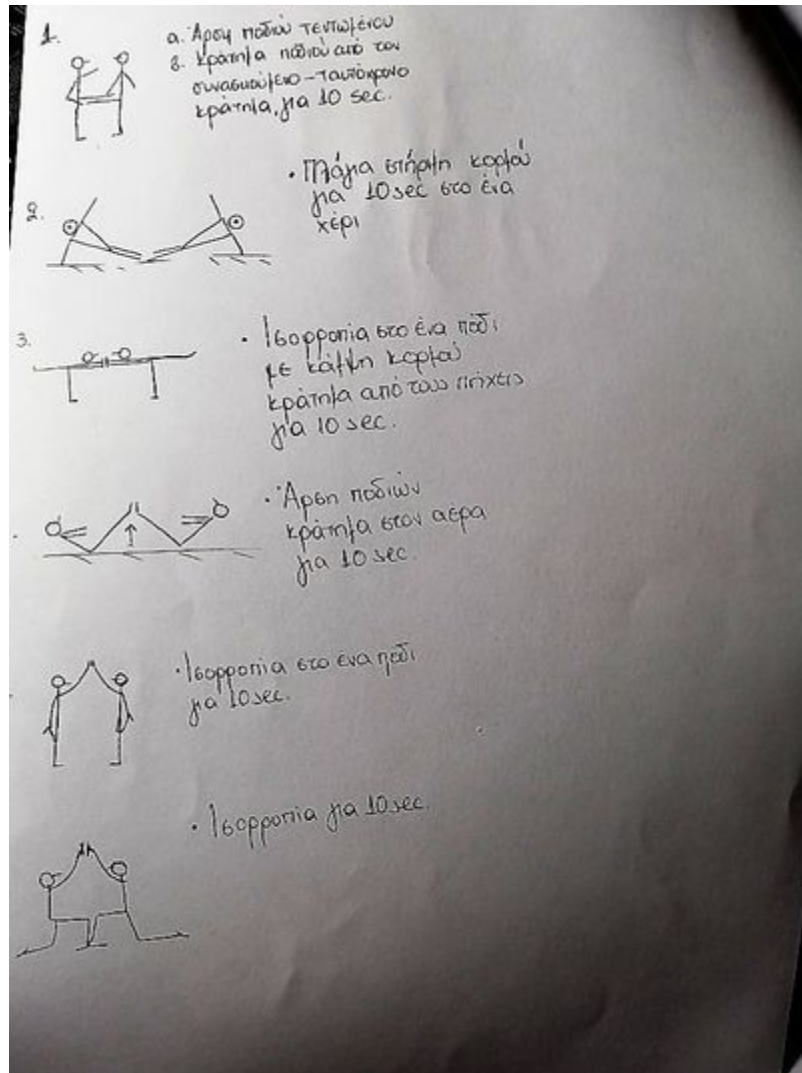 1.
α. Άρση ποδιού τεντωμένου
β. κράτημα ποδιού από τον
συνασκούμενο - ταυτόχρονο
κράτημα, για 10 sec.
2.
• Πλάγια στήριξη κορμού
για 10 sec στο ένα
χέρι
3.
• Ισορροπία στο ένα πόδι
με κάμψη κορμού
κράτημα από τους πήχεις
για 10 sec.
• Άρση ποδιών
κράτημα στον αέρα
για 10 sec.
• Ισορροπία στο ένα πόδι
για 10 sec.
• Ισορροπία για 10 sec.